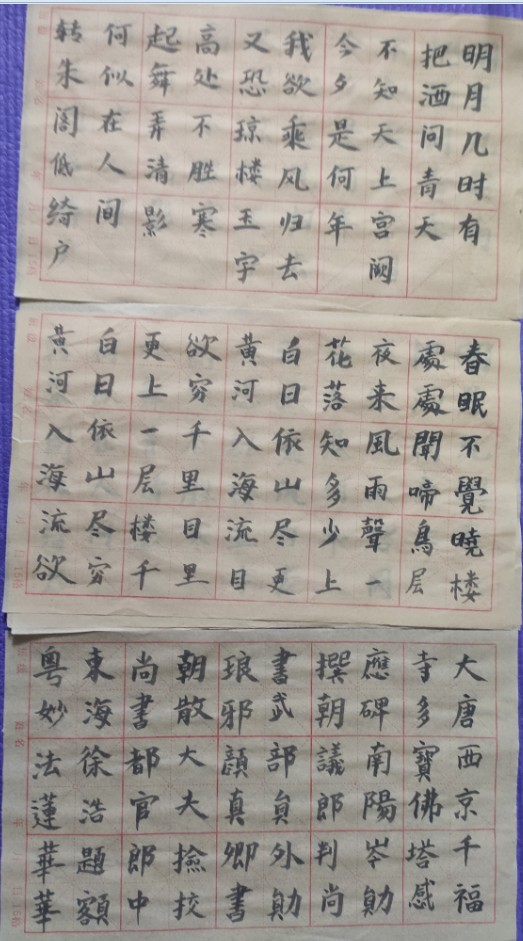 明月几时有
把酒问青天
不知天上宫阙
今夕是何年
我欲乘风归去
又恐琼楼玉宇
高处不胜寒
起舞弄清影
何似在人间
转朱阁低绮户
春眠不覺曉楼
處處聞啼鳥层
夜来風雨聲一
花落知多少上
白日依山尽更
黄河入海流目
欲穷千里目里
更上一层楼千
白日依山尽穷
黄河入海流欲
大唐西京千福
寺多寶佛塔感
應碑南陽岑勛
撰朝議郎判尚
書武部員外勛
琅邪顔真卿書
朝散大夫撿挍
尚書都官郎中
東海徐浩題額
粤妙法蓮華華